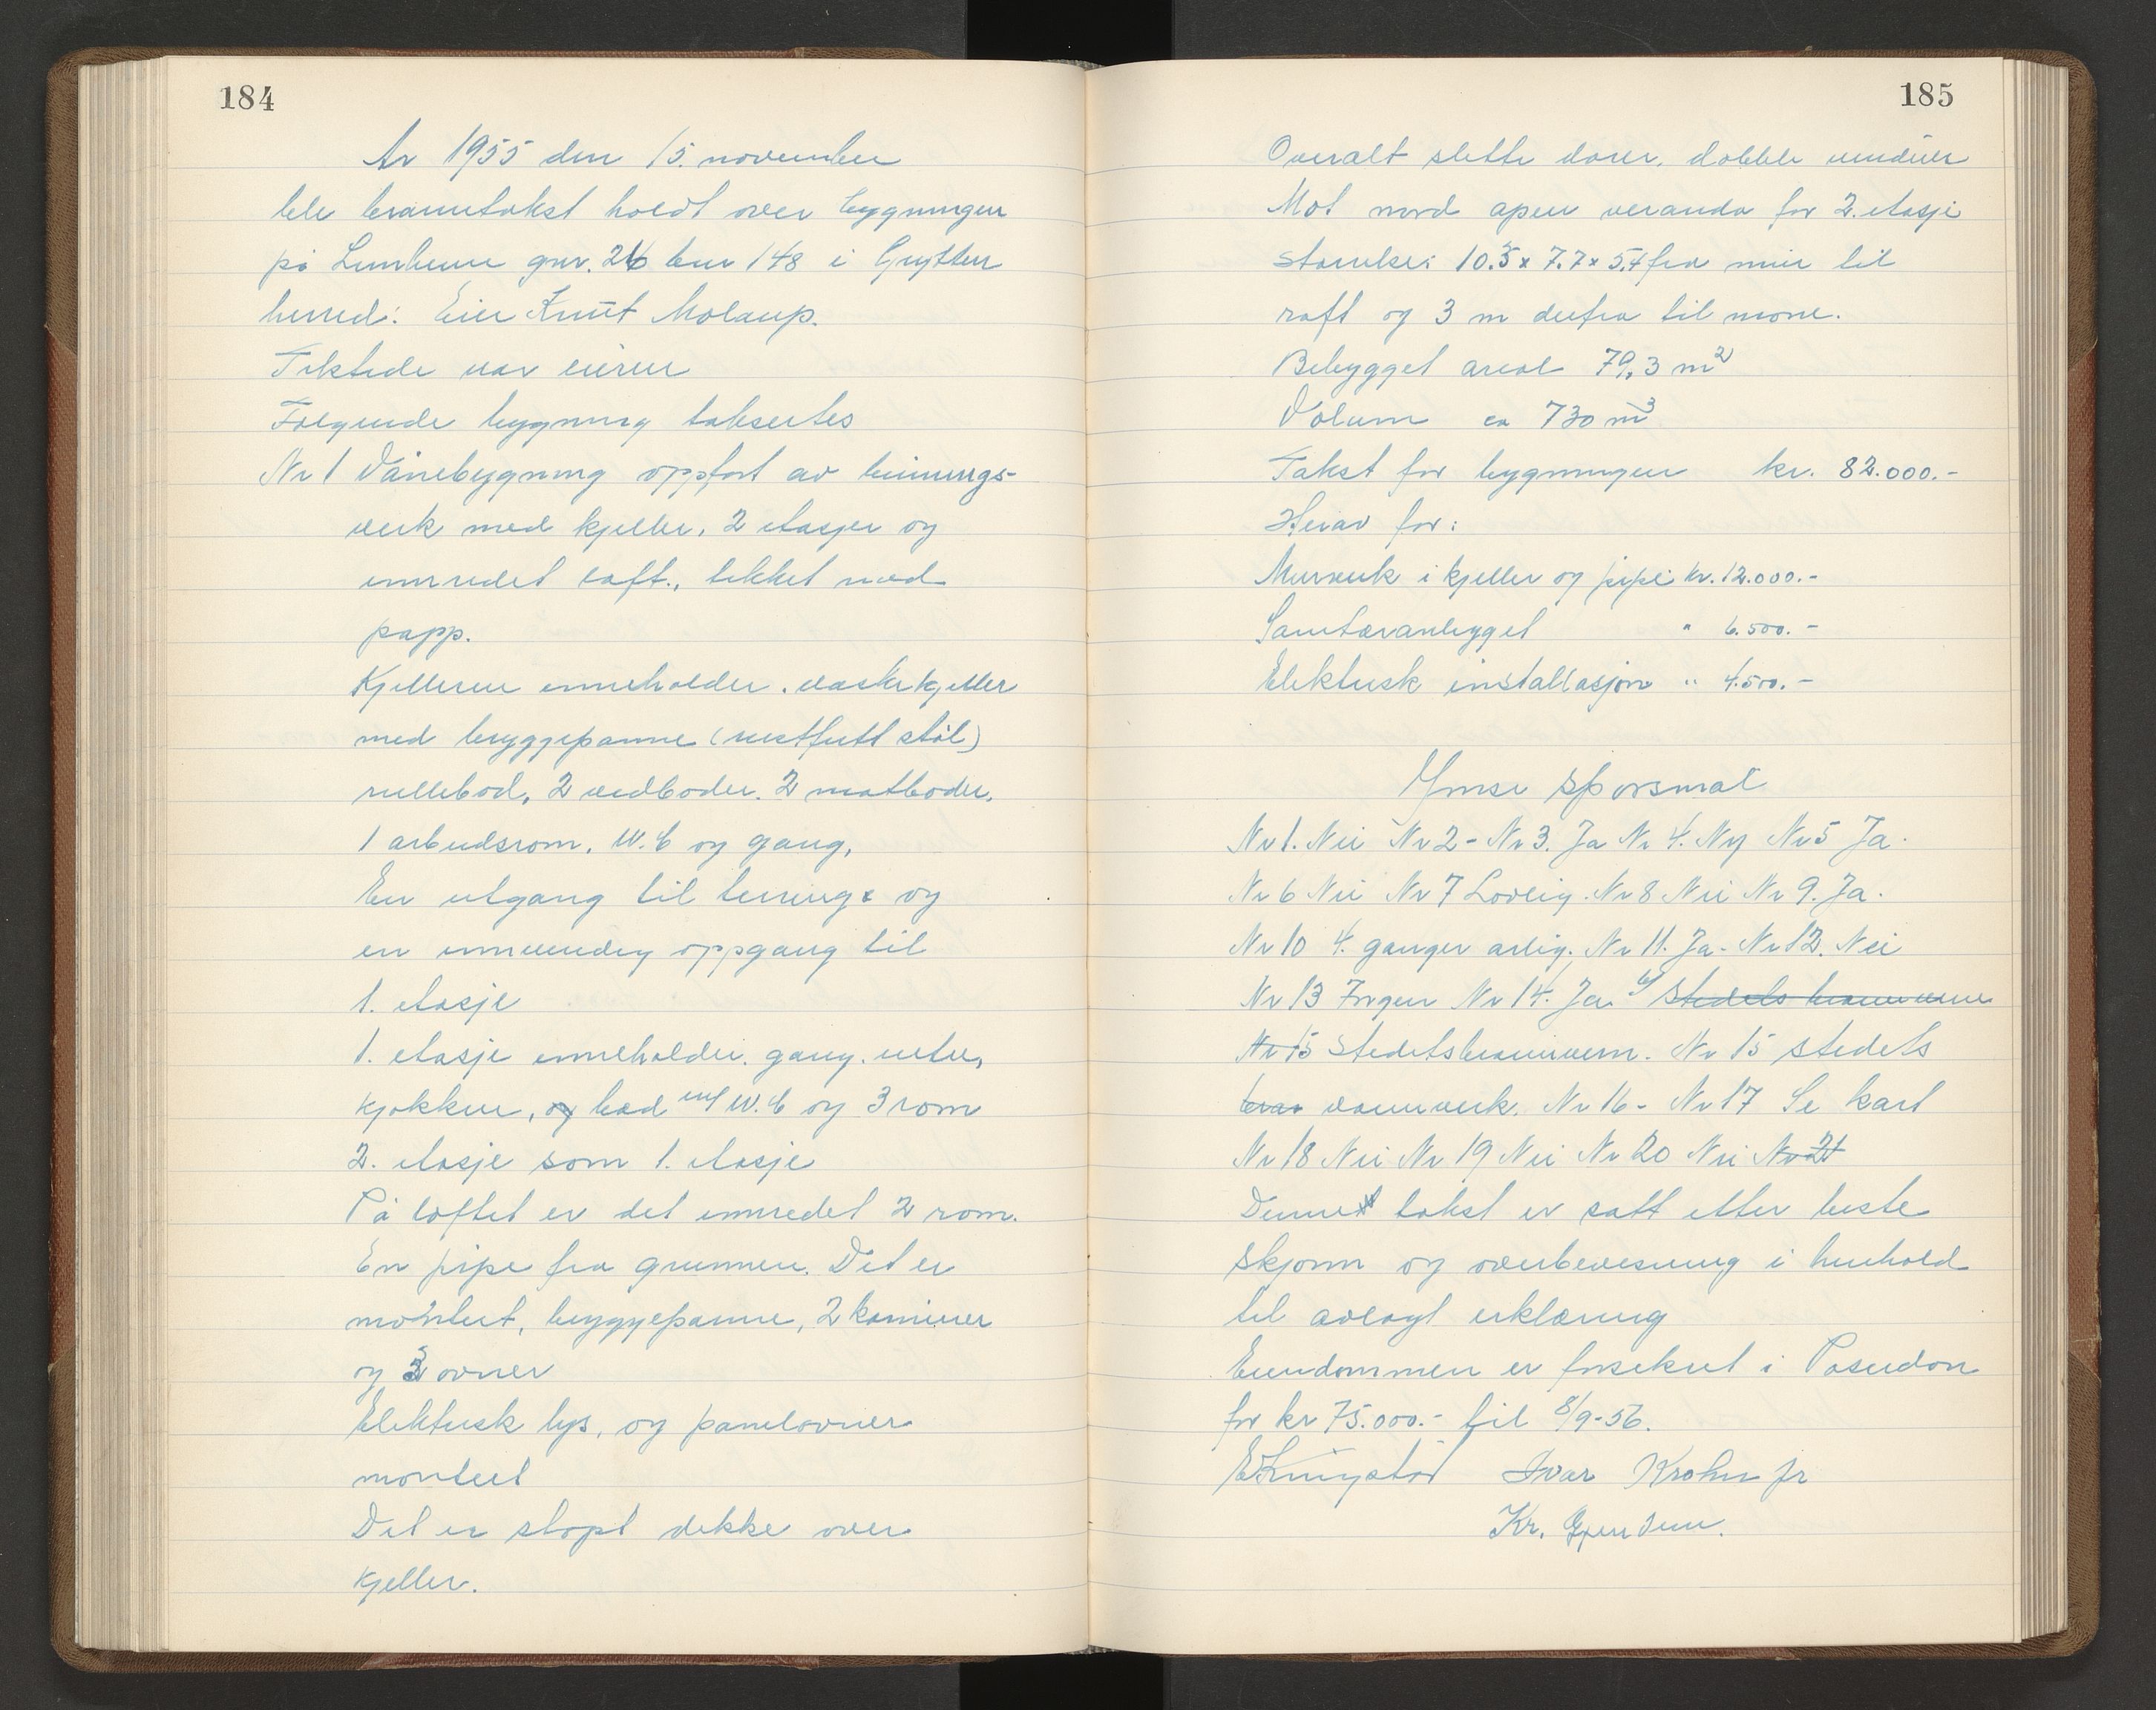 184
År 1955 den 15. november
ble branntakst holdt over bygningen
på Lunheim gnr. 26 bnr 148 i Grytten
herred: Eier Knut Molaup.
Tilstede var eieren
Følgende bygning taksertes
Nr 1 Vånebygning oppført av binnings-
verk med kjeller, 2 etasjer og
innredet loft., tekket med
papp.
Kjelleren inneholder. vaskekjeller
med bryggepanne (rustfritt stål)
rullebod, 2 vedboder. 2 matboder.
1 arbeidsrom, W.C og gang,
En utgang til terreng og
en innvendig oppgang til
1. etasje
1. etasje inneholder. gang. entre,
kjøkken, og bad m/ W.C og 3 rom
2. etasje som 1. etasje
På loftet er det innredet 2 rom.
En pipe fra grunnen. Det er
montert, bryggepanne, 2 kaminer
og 3 ovner
Elektrisk lys, og panelovner
montert
Det er støpt dekke over
kjeller.
185
Overalt slette dører, doble vinduer
Mot nord åpen veranda for 2. etasje
Størrelse: 10.3 x 7.7 x 5.4 fra mur til
raft og 3 m derfra til møne.
Bebygget areal 79,3 m²
Volum ca 730 m³
Takst for bygningen kr. 82.000.-
Herav for:
Murverk i kjeller og pipe kr. 12.000.-
Sanitæranlegget " 6.500.-
Elektrisk installasjon " 4.500.-
Ymse spørsmål
Nr 1. Nei Nr 2 - Nr 3. Ja Nr 4. Ny Nr 5 Ja.
Nr 6 Nei Nr 7 Lovlig. Nr 8 Nei Nr 9. Ja.
Nr 10 4. ganger årlig. Nr 11. Ja. Nr 12. Nei
Nr 13 Ingen Nr 14. Ja. Stedets brannvern
Nr 15 Stedets brannvern. Nr 15 stedets
bran vannverk. Nr 16 - Nr 17 Se kart
Nr 18 Nei Nr 19 Nei Nr 20 Nei Nr 21
Denne takst er satt etter beste
skjønn og overbevisning i henhold
til avlagt erklæring
Eiendommen er forsikret i Poseidon
for kr 75.000.- til 8/9-56.
Ivar Krohn jr
Kr.